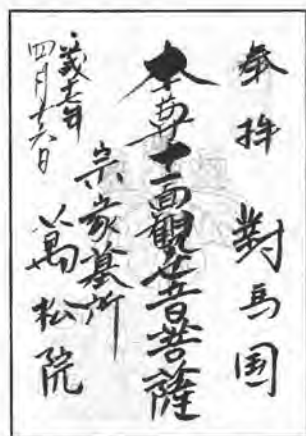 奉拝 對馬国
本尊十一面観世音菩薩
宗家墓所
萬松院
四月十六日